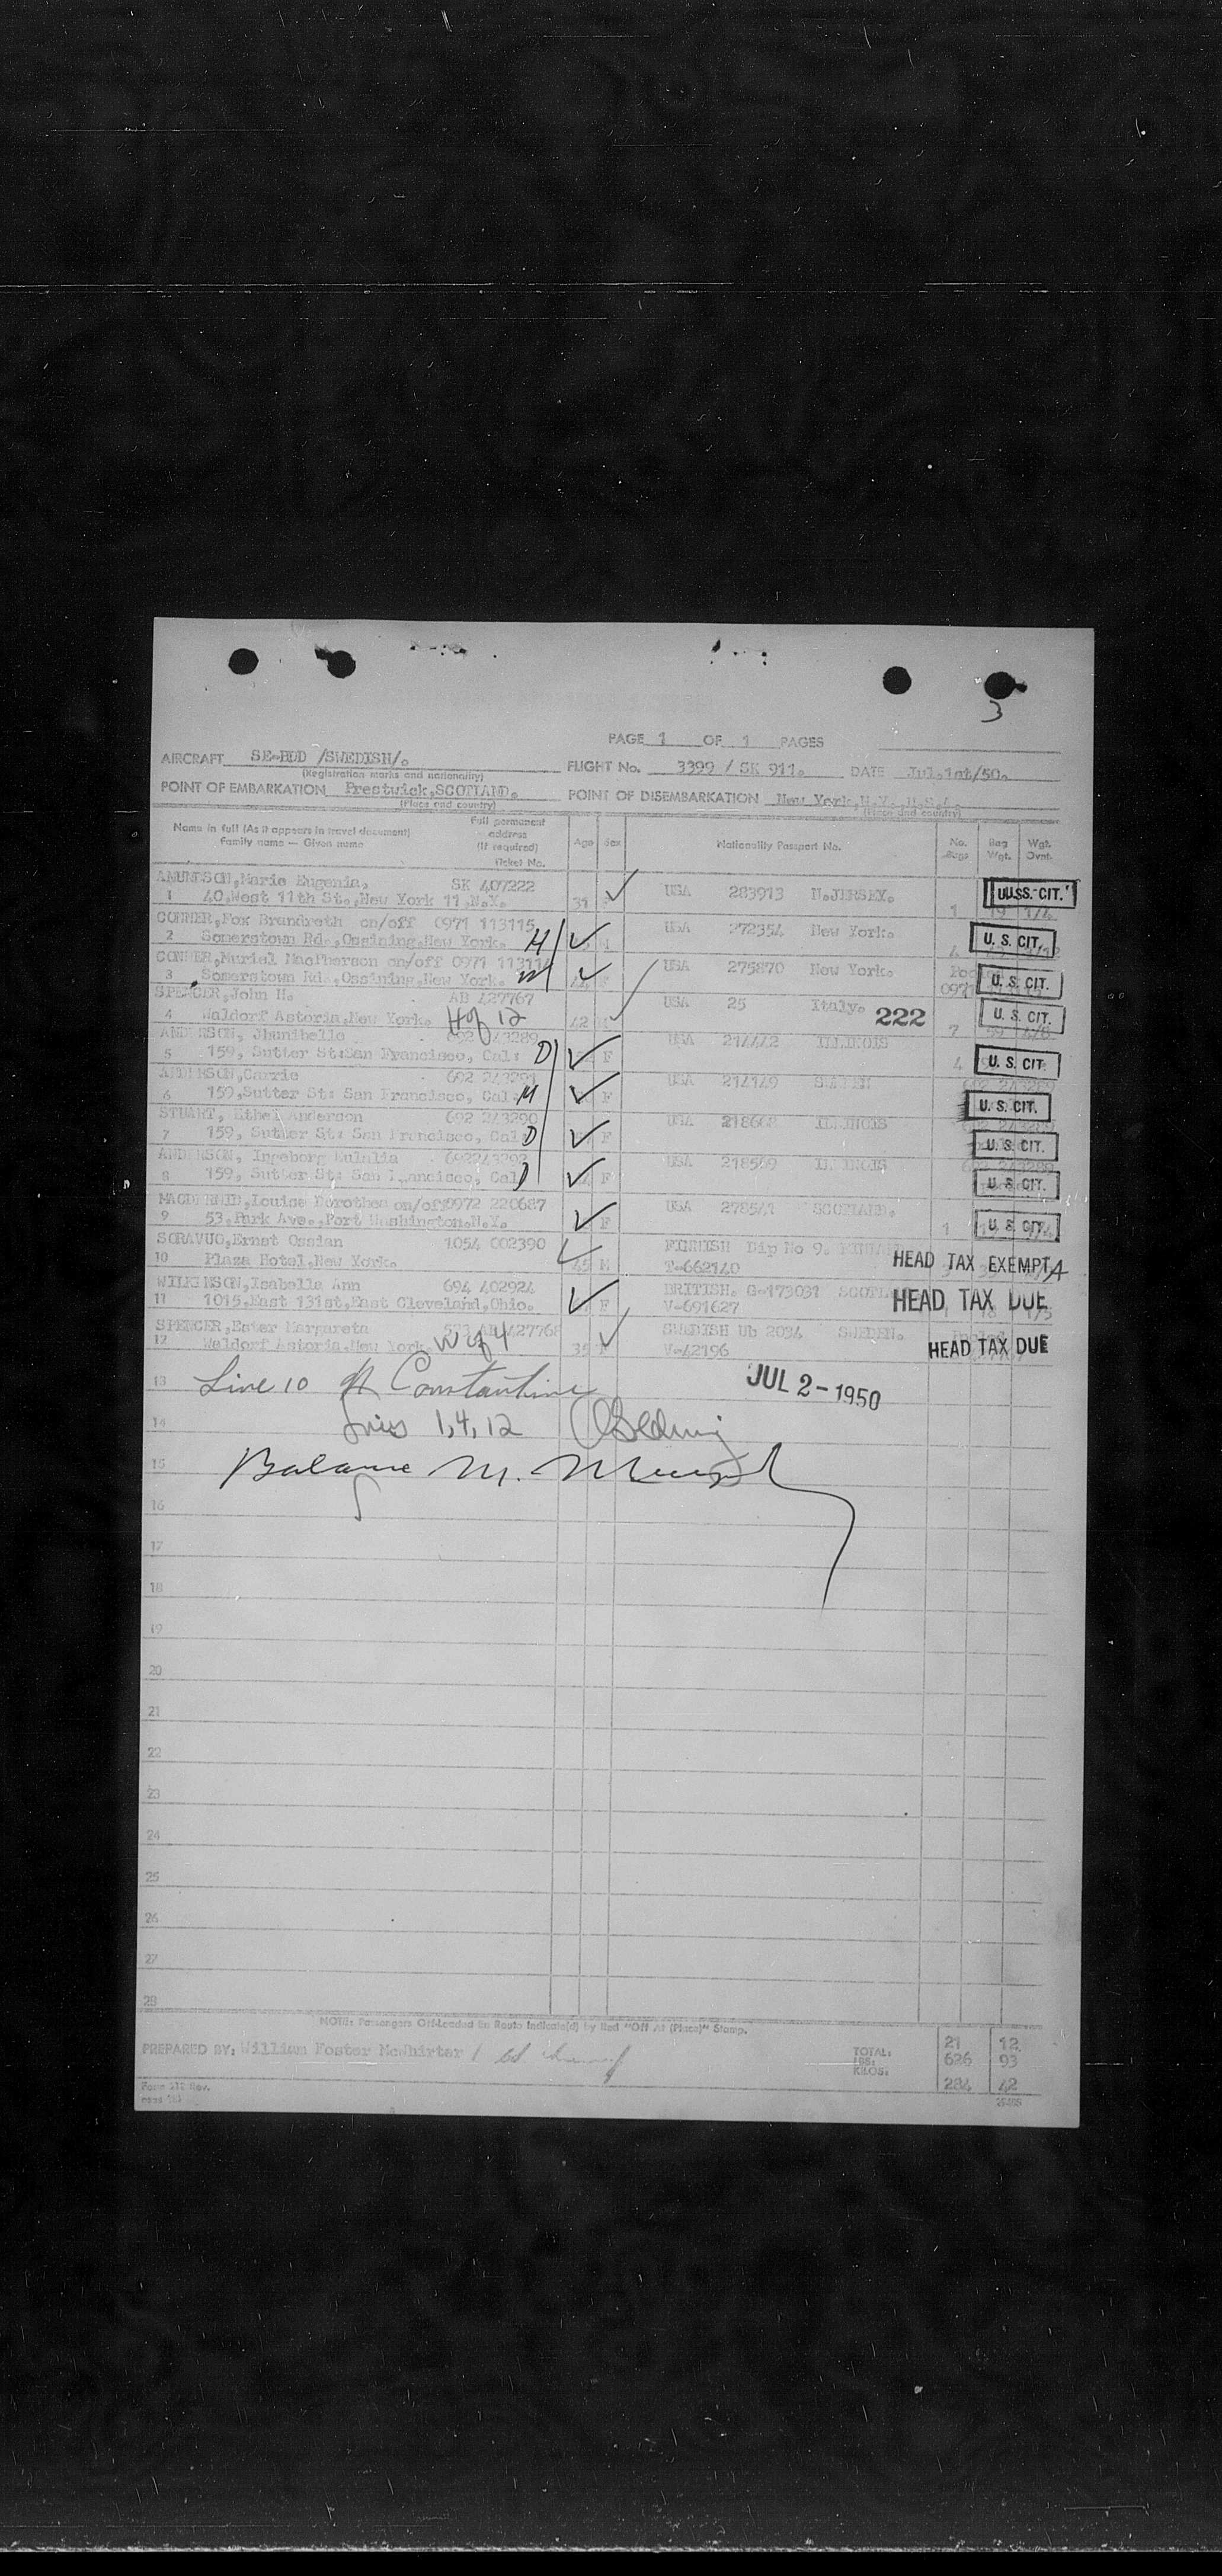 3
PAGE 1 OF 1 PAGES
AIRCRAFT SE-BDD /SWEDISH/.
(Registration marks and nationality)
FLIGHT No. 3399 / SK 911. DATE Jul.1st/50.
POINT OF EMBARKATION Prestwick,SCOTLAND.
(Place and country)
POINT OF DISEMBARKATION New York,N.Y.,U.S.A.
(Place and country)
Name in full (As it appears in travel document)
Family name — Given name
Full permanent
address
(If required)
Ticket No.
Age Sex
Nationality Passport No.
No. Bags
Bag Wgt.
Wgt. Ovnt.
AMUNDSON,Marie Eugenia, SK 407222 USA 283913 N.JERSEY. U.S. CIT.
1 40,West 11th St.,New York 11,N.Y. 31 1 19 1/4
CONNER,Fox Brandreth on/off 0971 113115 USA 272354 New York. U. S. CIT.
2 Somerstown Rd.,Ossining,New York. H 4
CONNER,Muriel MacPherson on/off 0971 USA 275870 New York. U. S. CIT.
3 Somerstown Rd.,Ossining,New York. W F 0971
SPENCER,John H. AB 427767 USA 25 Italy. 222 U. S. CIT.
4 Waldorf Astoria,New York. H of 12 42 7
ANDERSON, 692 243289 USA 214442 ILLINOIS U. S. CIT
5 159, Sutter St:San Francisco, Cal: D F 4
ANDERSON,Carrie 692 USA 214149 SWEDEN U. S. CIT.
6 159,Sutter St: San Francisco, Cal: M F
STUART, Ethel Anderson 692 243290 USA ILLINOIS U. S. CIT
7 159, Sutter St: San Francisco, Cal D F
ANDERSON, Ingeborg Eulalia USA 218509 ILLINOIS U. S. CIT.
8 159, Sutter St: San Francisco, Cal D F
Louise Dorothea on/off 0972 220687 USA 278541 SCOTLAND. U. S. CIT.
9 53,Park Ave.,Port Washington.N.Y. F 1
SORAVUO,Ernst Ossian 1054 002390 FINNISH Dip No 9. HEAD TAX EXEMPT
10 Plaza Hotel,New York. 45 M T-662140
WILKINSON,Isabella Ann 694 402924 BRITISH. G-173031 HEAD TAX DUE
11 1015,East 131st,East Cleveland,Ohio. F V-691627
SPENCER,Ester Margareta AB 427768 SWEDISH Ub 2034 SWEDEN. HEAD TAX DUE
12 Waldorf Astoria,New York. W of 4 V-42196
13 Line 10 Constantine JUL 2 - 1950
14 Lines 1,4,12
15 Balance M.
16
17
18
19
20
21
22
23
24
25
26
27
28
NOTE: Passengers Off-Loaded En Route Indicate(d) by Red "Off At (Place)" Stamp.
PREPARED BY: William Foster McWhirter
TOTAL: 21 12
LBS: 626 93
KILOS: 284 42